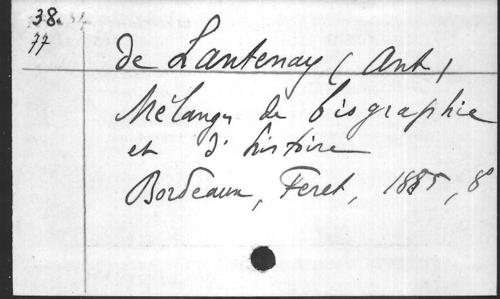 38.
77
de Lantenay (Ant)
Mélanges de biographie
et d'histoire
Bordeaux, Feret, 1885, 8°